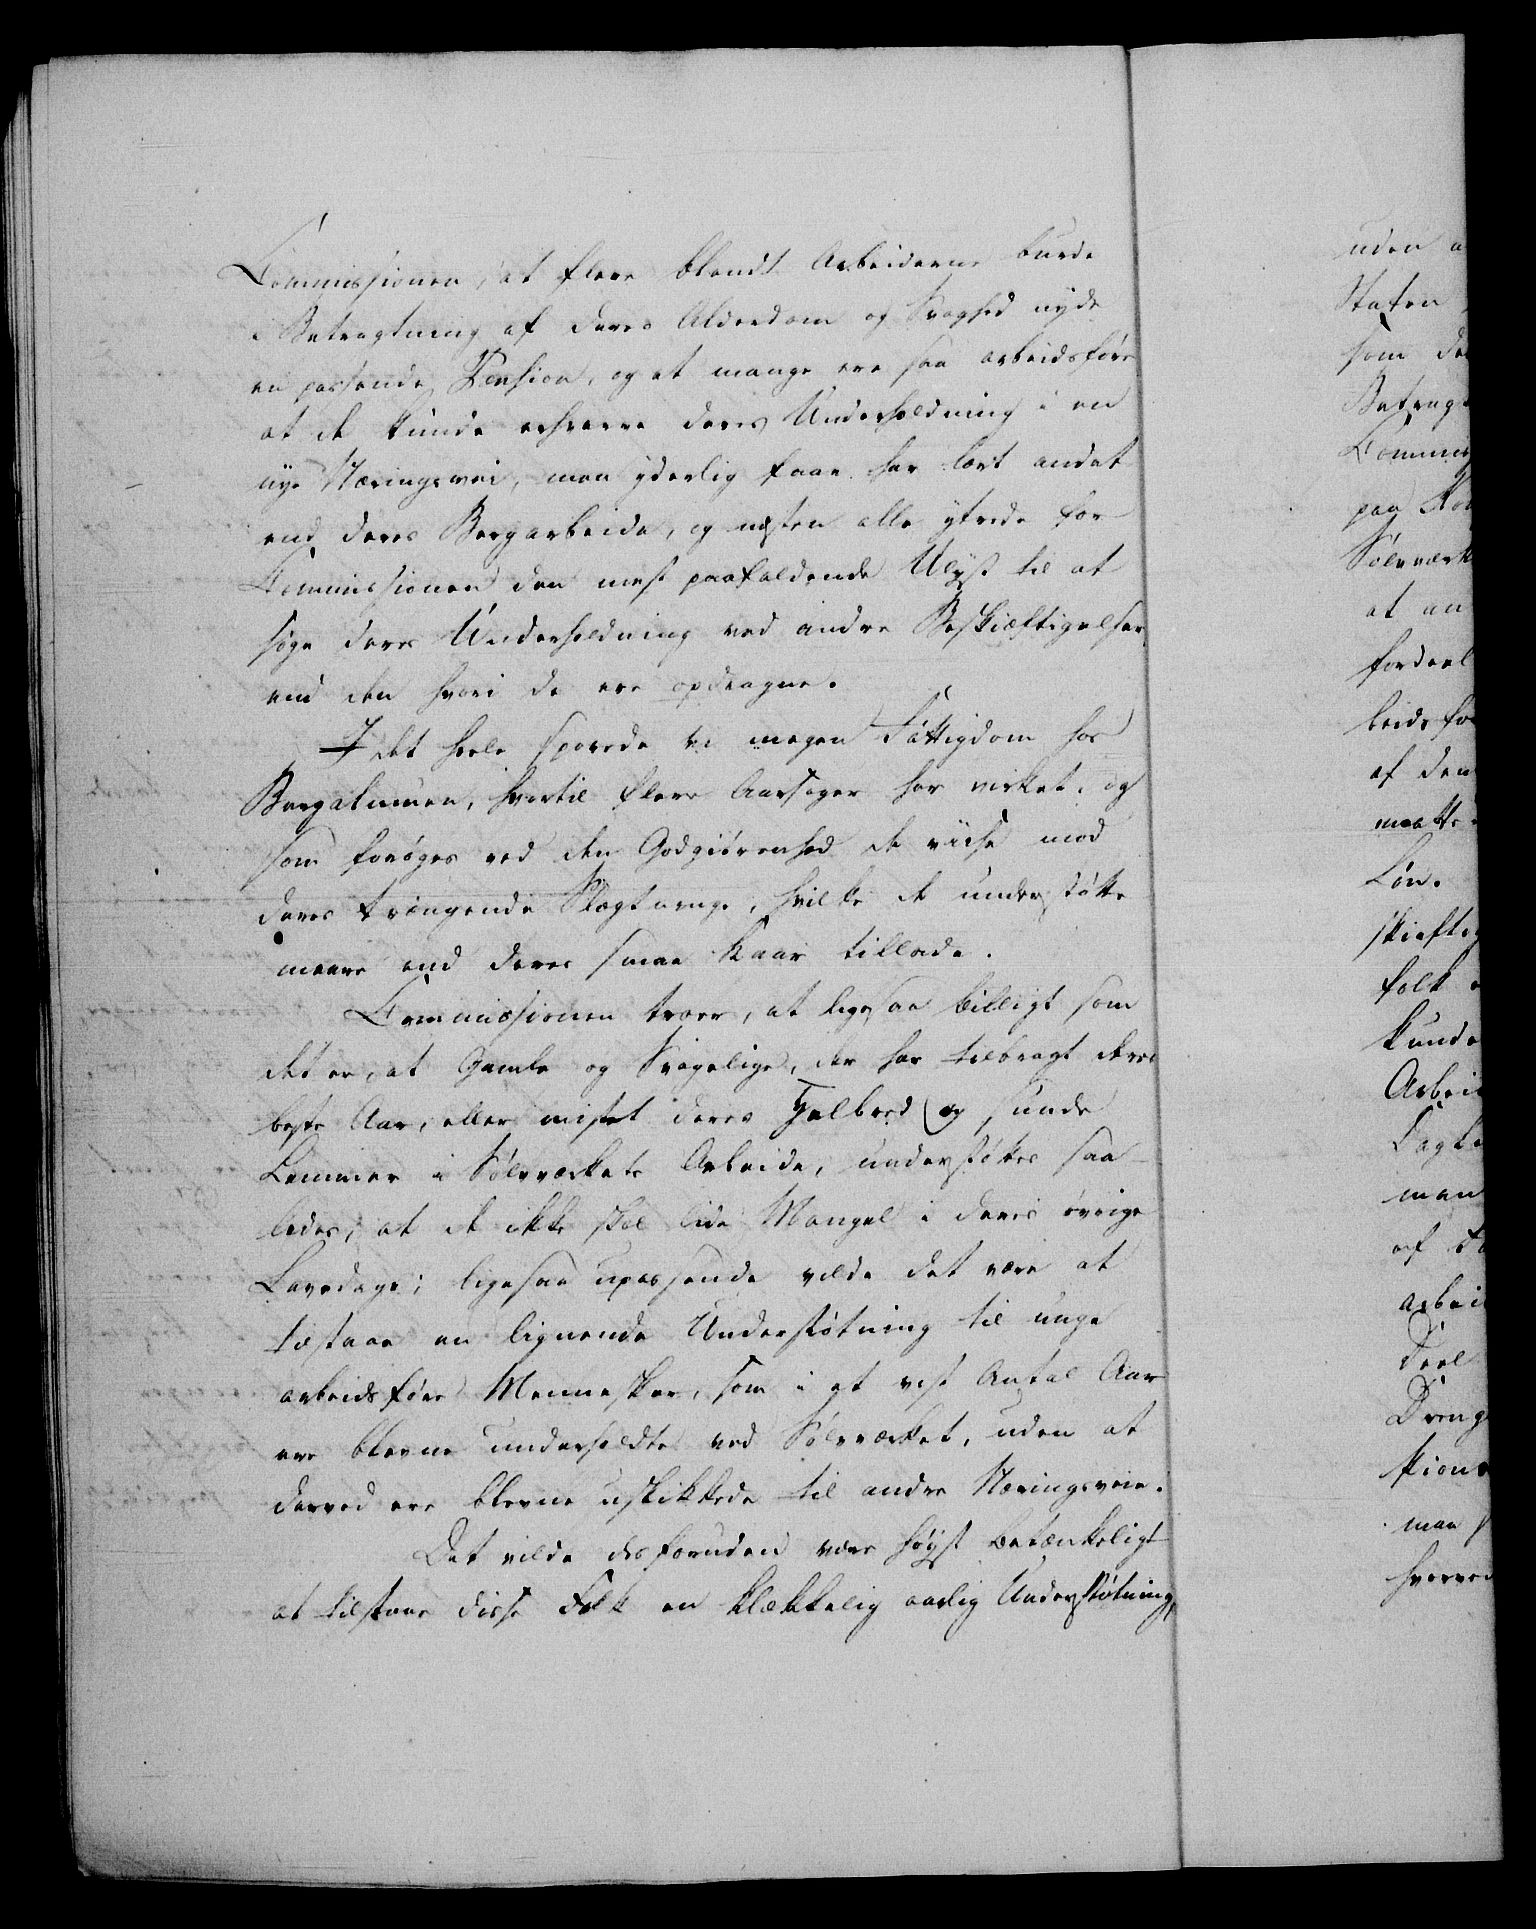 Commissionen, at flere blandt Arbeiderne burde
i Betragtning af deres Alderdom og Svaghed nyde
en passende Pension, og at mange ere saa arbeidsføre
at de kunde erhverve deres Underholdning i en
nye Næringsvei, men yderlig faae har lært andet
end deres Bergarbeide, og næsten alle yttrede for
Commissionen den mest paafaldende Ulyst til at
søge deres Underholdning ved andre Beskiæftigelser
end den hvori de ere opdragne.
I det hele sporede vi megen Fattigdom hos
Bergalmuen, hvortil flere Aarsager har virket, og
som forøges ved den Godgiørenhed de viise mod
deres trængende Slægtninge, hvilke de understøtte
meere end deres smaa Kaar tillade.
Commissionen troer, at ligesaa billigt som
det er, at Gamle og Svagelige, der har tilbragt deres
beste Aar, eller mistet deres Helbred og sunde
Lemmer i Sølvværkets Arbeide, understøttes saa
ledes, at de ikke skal lide Mangel i deres øvrige
Levedage; ligesaa upassende vilde det være at
tilstaae en lignende Understøtning til unge
arbeidsføre Mennesker, som i et vist Antal Aar
ere blevne underholdte ved Sølvværket, uden at
derved ere blevne uskikkede til andre Næringsveie.
Det vilde desforuden være høyst betænkeligt
at tilstaae disse Folk en klækkelig aarlig Understøtning,
uden
Staten
som
Betragt
Commis
paa
Sølvværk
at en
fordeel
beidsfø
af den
maatte
Løn.
skiefti
folk
kunde
Arbei
Dagl
man
af
arbei
Deel
Dreng
man